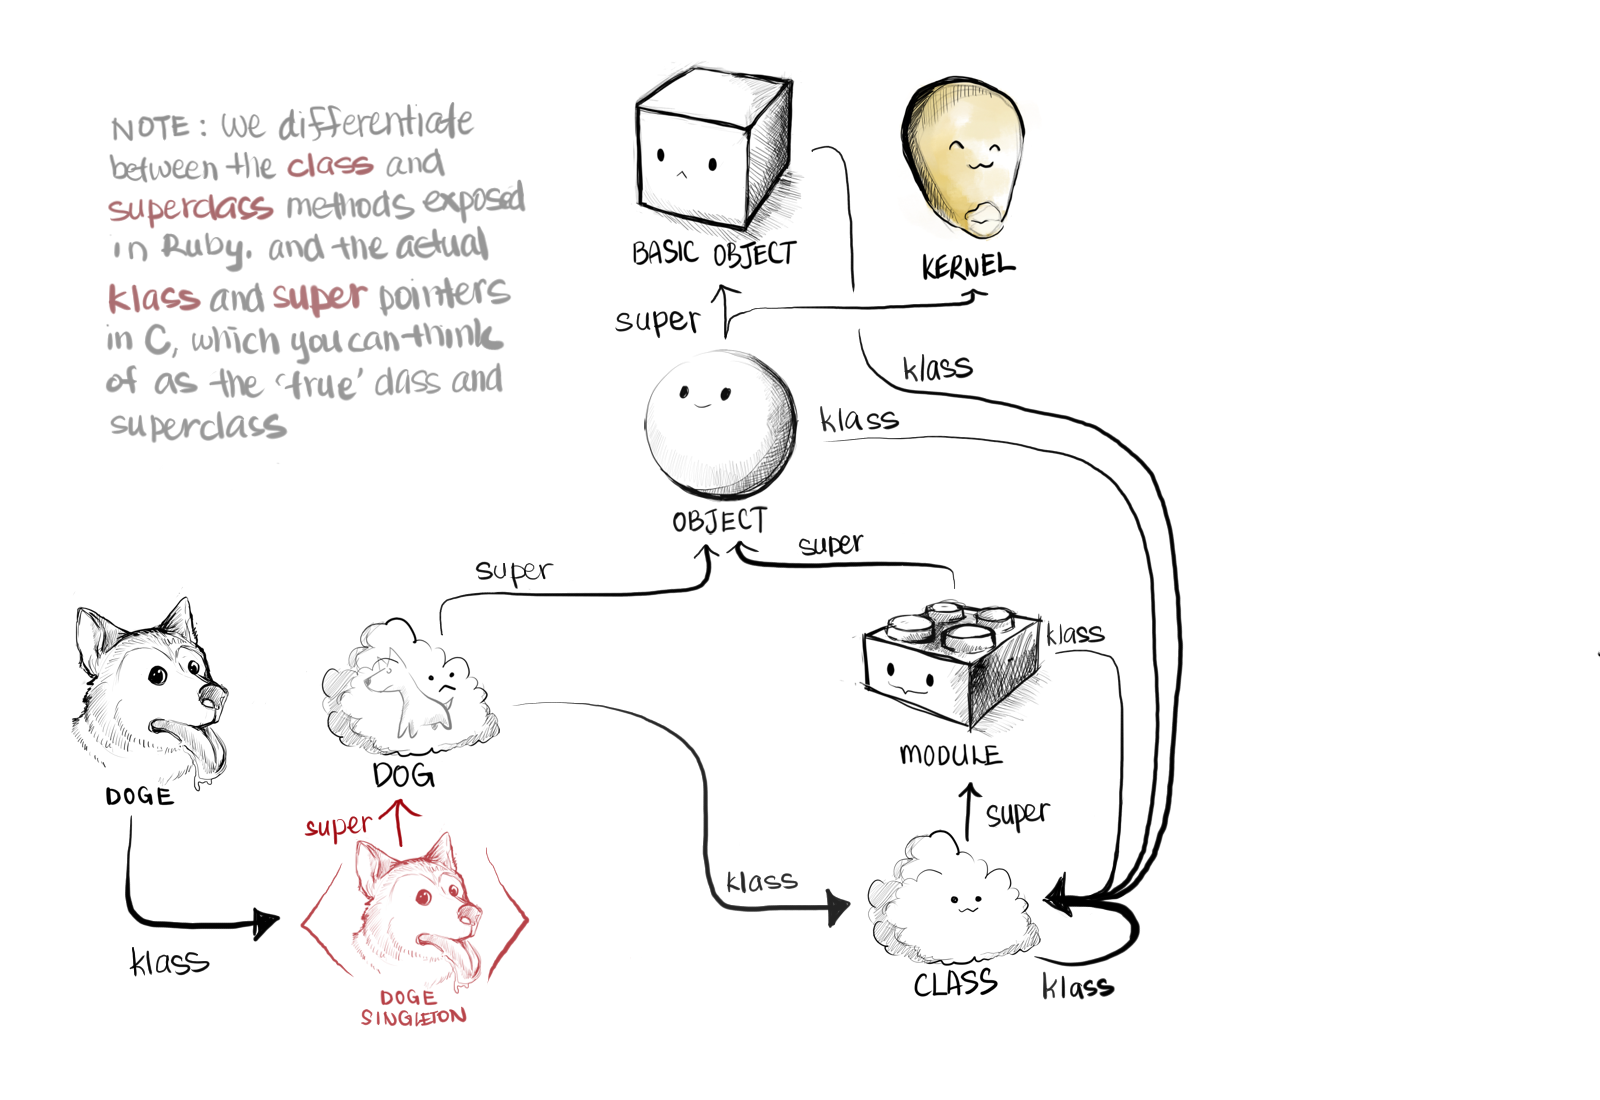 NOTE: we differentiate
between the class and
superclass methods exposed
in Ruby. and the actual
klass and super pointers
in C, which you can think
of as the 'true' class and
superclass
BASIC OBJECT
KERNEL
super
klass
klass
OBJECT
super
super
klass
DOGE
DOG
MODULE
super
super
klass
klass
DOGE
SINGLETON
CLASS
klass